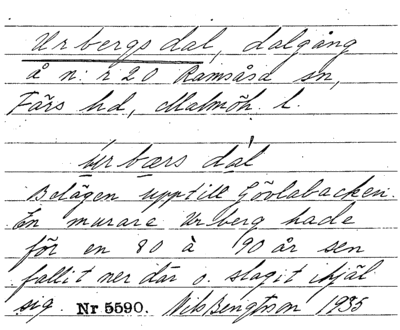 Urbergs dal, dalgång
å n:r 20 Ramsåsa sn,
Färs hd, Malmöh. l.
Urbærs dal
Belägen upptill Göølabacken.
En murare Urberg hade
för en 80 à 90 år sen
fallit ner där o. slagit ihjäl
sig. Nr 5590. Nils Bengtsson 1935